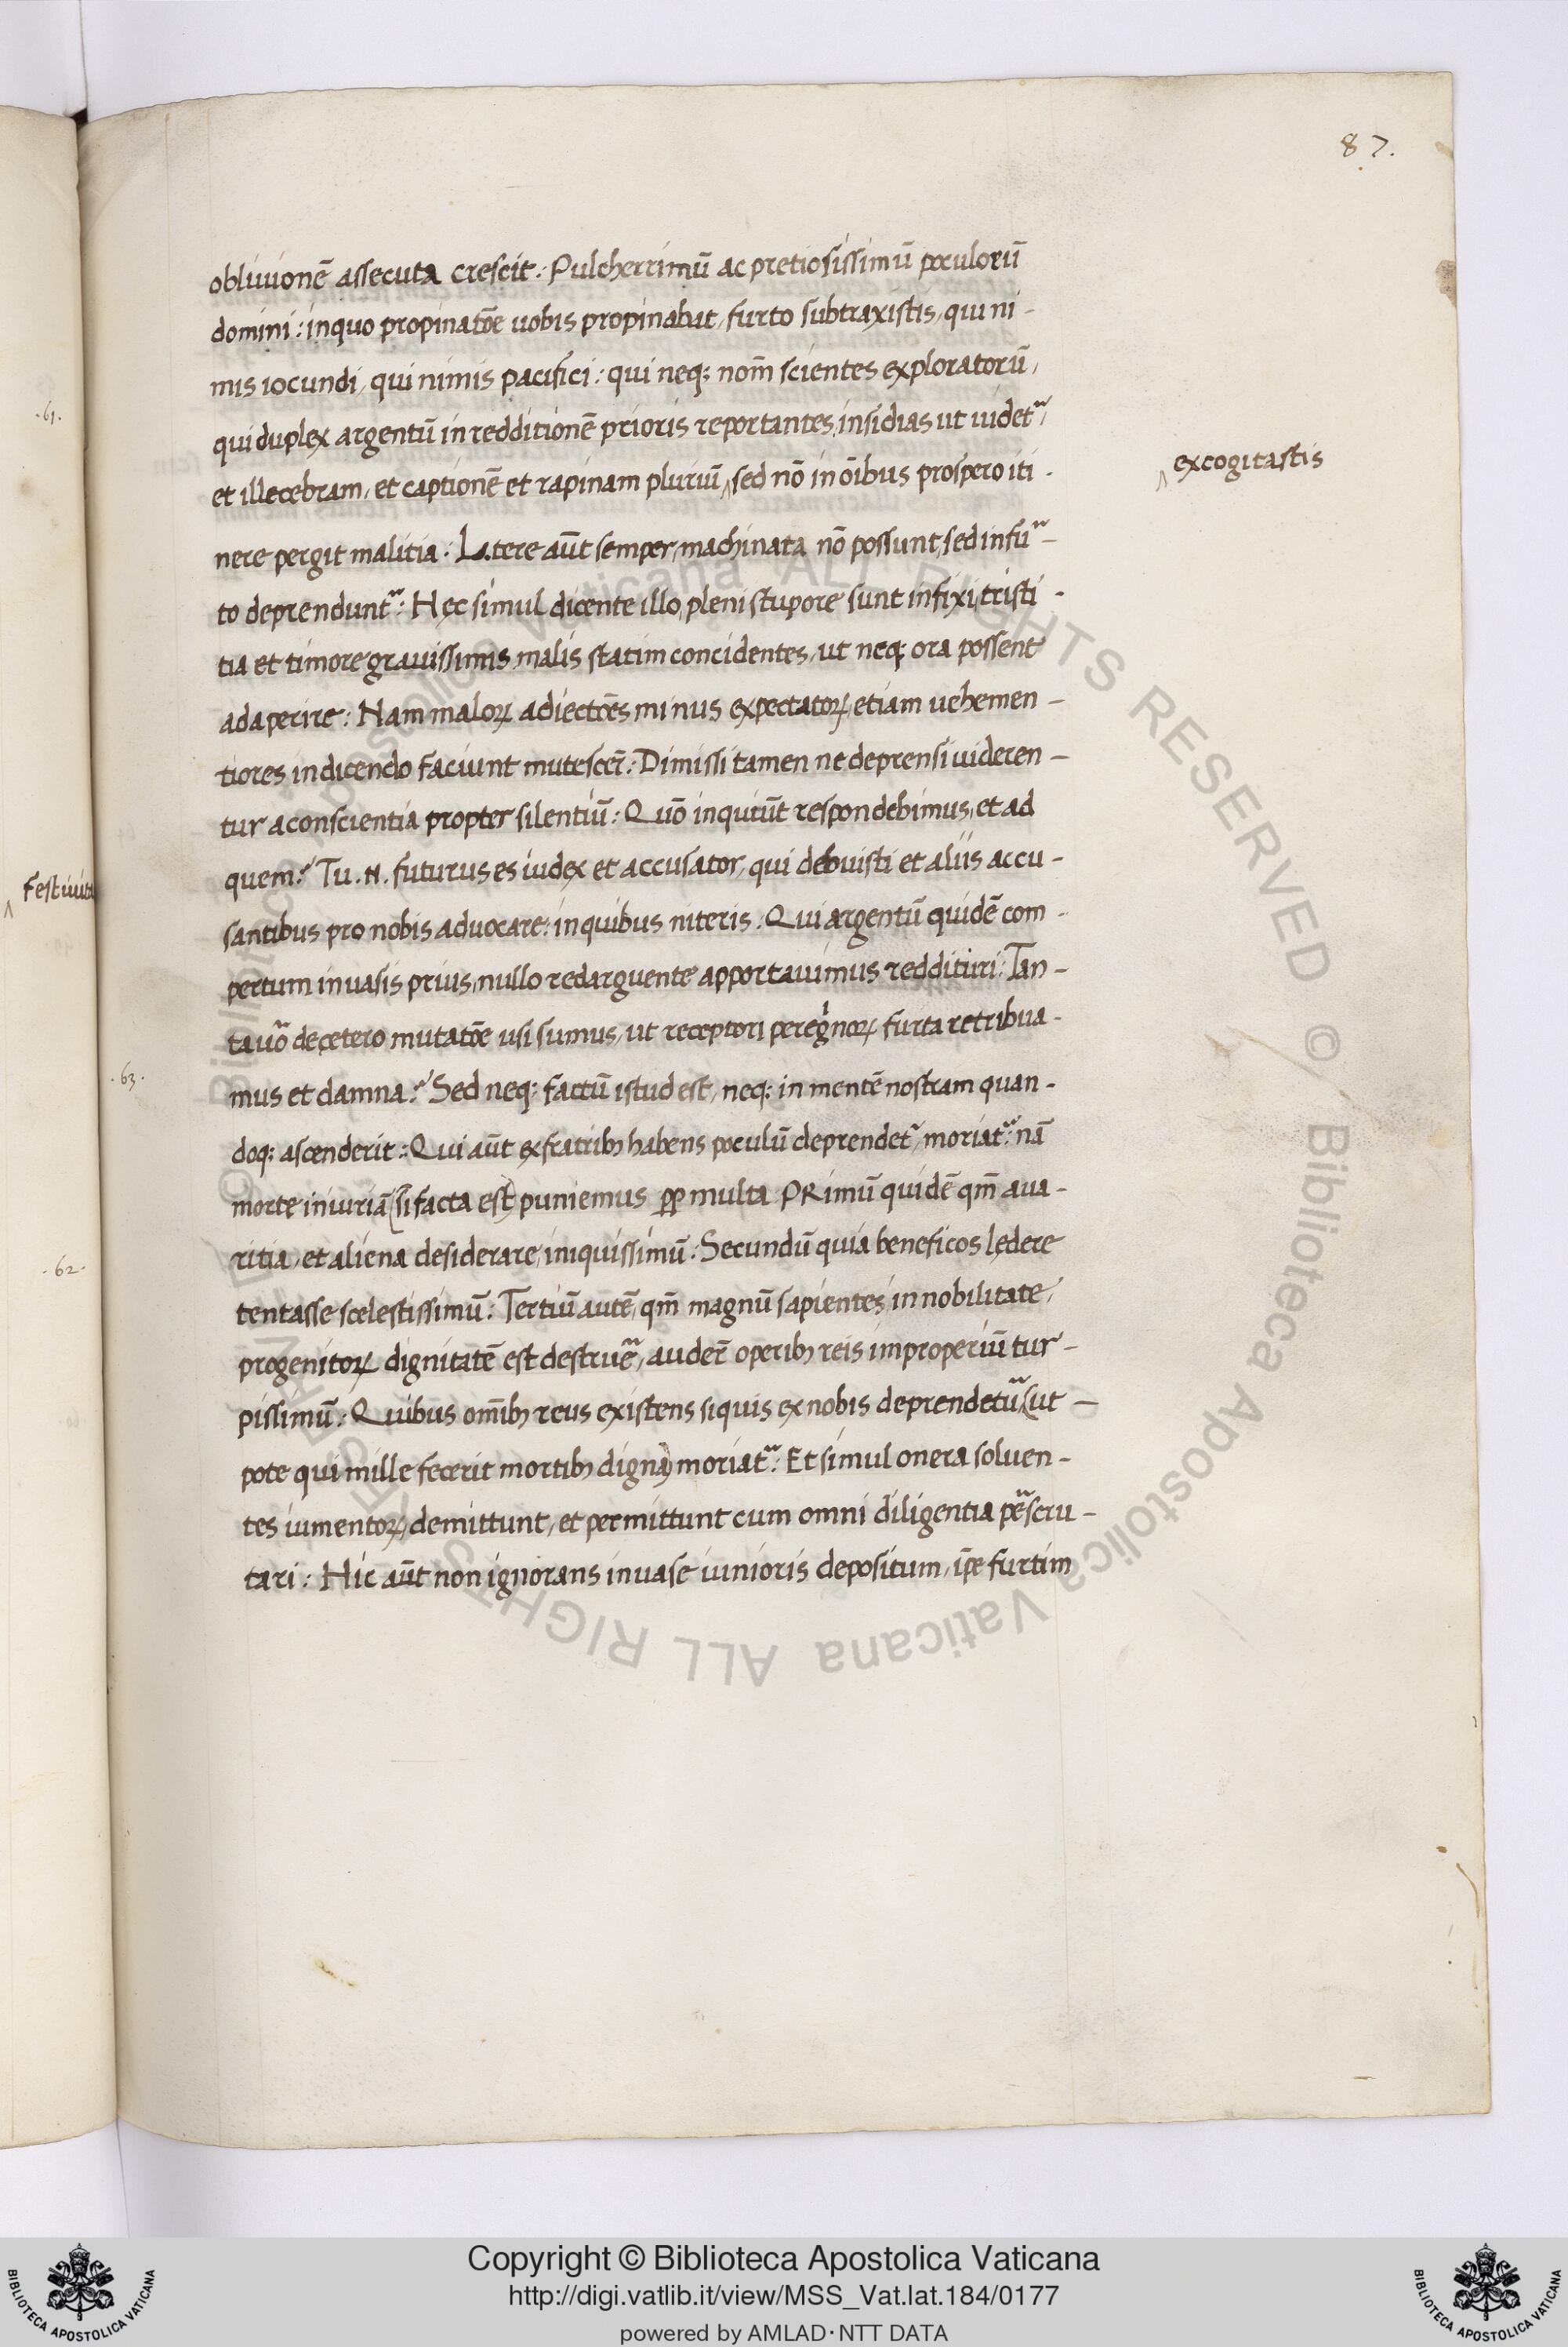 87.
obliuionē assecuta crescit: Pulcherrimū ac pretiosissimū poculorū
domini: inquo propinatōe uobis propinabat, furto subtraxistis, qui ni-
mis iocundi, qui nimis pacifici: qui neq; nom̄ scientes exploratorū,
qui duplex argentū in redditionē prioris reportantes, insidias ut uidet᷑,
et illecebram, et captionē et rapinam pluriū, sed nō in oībus prospero iti-
excogitastis
nere pergit malitia: Latere aūt semper, machinata nō possunt, sed infu᷑-
to deprendunt᷑: Hęc simul dicente illo, pleni stupore sunt infixi, tristi-
tia et timore grauissimis malis statim concidentes, ut neq; ora possent
adaperire: Nam maloꝝ adiectōes minus expectatoꝝ, etiam uehemen-
tiores in dicendo faciunt mutescer̄: Dimissi tamen ne deprensi uideren-
tur aconscientia propter silentiū: Quō inquiūt respondebimus, et ad
quem? Tu .N. futurus es iudex et accusator, qui debuisti et aliis accu-
festiuita
santibus pro nobis aduocare: inquibus niteris. Qui argentū quidē com-
pertum inuasis prius, nullo redarguente apportauimus reddituri: Tan-
ta uō de cetero mutatōe usi sumus, ut receptori peregrinoꝝ furta retribua-
mus et damna? Sed neq; factū istud est, neq; in mentē nostram quan-
doq; ascenderit: Qui aūt ex fratribꝫ habens poculū deprendet᷑, moriat᷑: nā
morte iniuriā (si facta est) puniemus ꝓp multa PRimū quidē qm̄ aua-
ritia, et aliena desiderare, iniquissimū: Secundū quia beneficos lędere
tentasse scelestissimū: Tertiū autē, qm̄ magnū sapientes, in nobilitate,
progenitoꝝ dignitatē est destrue᷑, auder̄ operibꝫ reis improperiū tur-
pissimū: Quibus om̄ibꝫ reus existens siquis ex nobis deprendetu᷑ (ut-
pote qui mille fecerit mortibꝫ digna) moriat᷑: Et simul onera soluen-
tes iumentoꝝ, demittunt, et permittunt cum omni diligentia pe᷑scru-
tari: Hic aūt non ignorans inuase iunioris depositum, ip̄e furtim
.61.
.63.
.62.
Copyright © Biblioteca Apostolica Vaticana
http://digi.vatlib.it/view/MSS_Vat.lat.184/0177
powered by AMLAD·NTT DATA
BIBLIOTECA APOSTOLICA VATICANA
BIBLIOTECA APOSTOLICA VATICANA